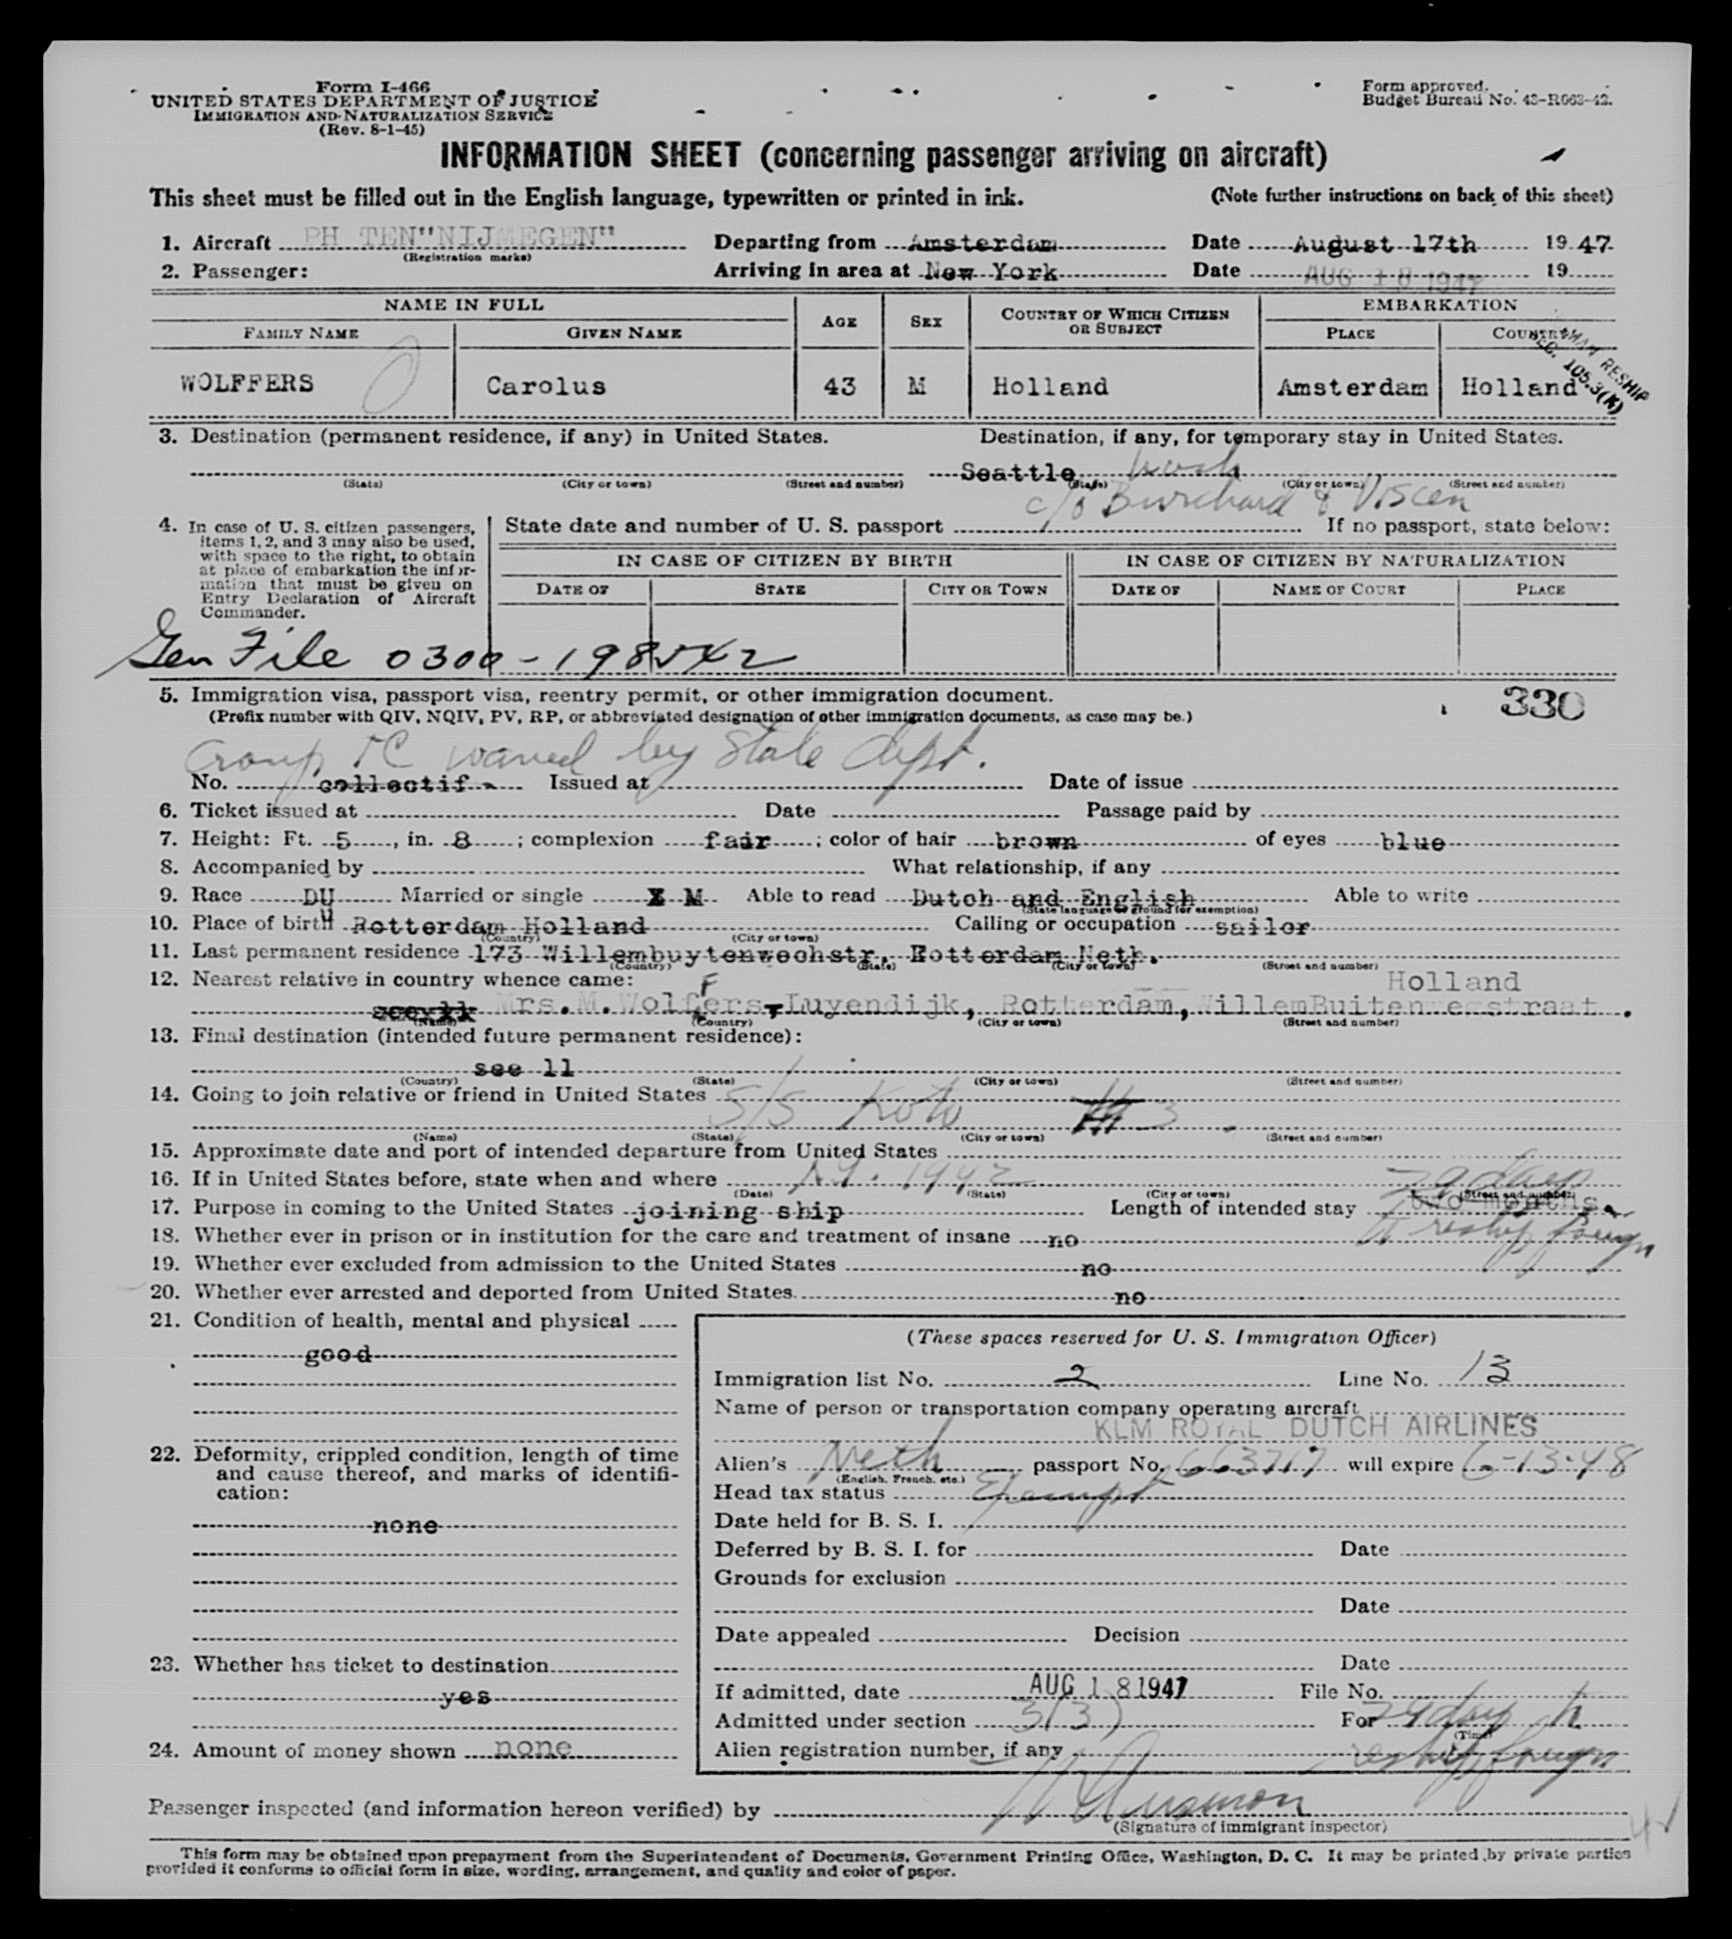 Form I-466
UNITED STATES DEPARTMENT OF JUSTICE
IMMIGRATION AND NATURALIZATION SERVICE
(Rev. 8-1-45)
Form approved.
Budget Bureau No. 43-R063-42.
INFORMATION SHEET (concerning passenger arriving on aircraft)
This sheet must be filled out in the English language, typewritten or printed in ink. (Note further instructions on back of this sheet)
1. Aircraft PH TEN"NIJMEGEN" Departing from Amsterdam Date August 17th 1947
(Registration marks)
2. Passenger: Arriving in area at New York Date AUG 18 1947 19
NAME IN FULL AGE SEX COUNTRY OF WHICH CITIZEN OR SUBJECT EMBARKATION
FAMILY NAME GIVEN NAME PLACE COUNTRY
WOLFFERS Carolus 43 M Holland Amsterdam Holland
RESHIP
105.3(K)
3. Destination (permanent residence, if any) in United States. Destination, if any, for temporary stay in United States.
Seattle Wash
(State) (City or town) (Street and number) (State) (City or town) (Street and number)
c/o Burchard & Viscen
4. In case of U. S. citizen passengers, items 1, 2, and 3 may also be used, with space to the right, to obtain at place of embarkation the information that must be given on Entry Declaration of Aircraft Commander.
State date and number of U. S. passport If no passport, state below:
IN CASE OF CITIZEN BY BIRTH IN CASE OF CITIZEN BY NATURALIZATION
DATE OF STATE CITY OR TOWN DATE OF NAME OF COURT PLACE
Gen File 0300-198542
5. Immigration visa, passport visa, reentry permit, or other immigration document. 330
(Prefix number with QIV, NQIV, PV, RP, or abbreviated designation of other immigration documents, as case may be.)
Group TC waved by State dept.
No. collectif Issued at Date of issue
6. Ticket issued at Date Passage paid by
7. Height: Ft. 5, in. 8; complexion fair; color of hair brown of eyes blue
8. Accompanied by What relationship, if any
9. Race DU Married or single X M Able to read Dutch and English Able to write
(State language or ground for exemption)
10. Place of birth Rotterdam Holland Calling or occupation sailor
(Country) (City or town)
11. Last permanent residence 173 Willembuytenwechstr. Rotterdam Neth.
(Country) (State) (City or town) (Street and number)
12. Nearest relative in country whence came: Holland
F
Mrs. M. Wolffers-Luyendijk, Rotterdam, WillemBuitenwegstraat.
(Name) (Country) (City or town) (Street and number)
13. Final destination (intended future permanent residence):
see 11
(Country) (State) (City or town) (Street and number)
14. Going to join relative or friend in United States
S/S Koto
(Name) (State) (City or town) (Street and number)
15. Approximate date and port of intended departure from United States
16. If in United States before, state when and where N.Y. 1942
(Date) (State) (City or town) (Street and number)
29 days
17. Purpose in coming to the United States joining ship Length of intended stay two months
to reship foreign
18. Whether ever in prison or in institution for the care and treatment of insane no
19. Whether ever excluded from admission to the United States no
20. Whether ever arrested and deported from United States no
21. Condition of health, mental and physical
good
22. Deformity, crippled condition, length of time and cause thereof, and marks of identification:
none
23. Whether has ticket to destination
yes
24. Amount of money shown none
(These spaces reserved for U. S. Immigration Officer)
Immigration list No. 2 Line No. 13
Name of person or transportation company operating aircraft
KLM ROYAL DUTCH AIRLINES
Alien's Neth passport No. 663717 will expire 6-13-48
(English, French, etc.)
Head tax status Exempt
Date held for B. S. I.
Deferred by B. S. I. for Date
Grounds for exclusion
Date
Date appealed Decision
Date
If admitted, date AUG 18 1947 File No.
Admitted under section 3(3) For 29 days to
(Time)
Alien registration number, if any reship foreign
Passenger inspected (and information hereon verified) by
(Signature of immigrant inspector)
This form may be obtained upon prepayment from the Superintendent of Documents, Government Printing Office, Washington, D. C. It may be printed by private parties
provided it conforms to official form in size, wording, arrangement, and quality and color of paper.